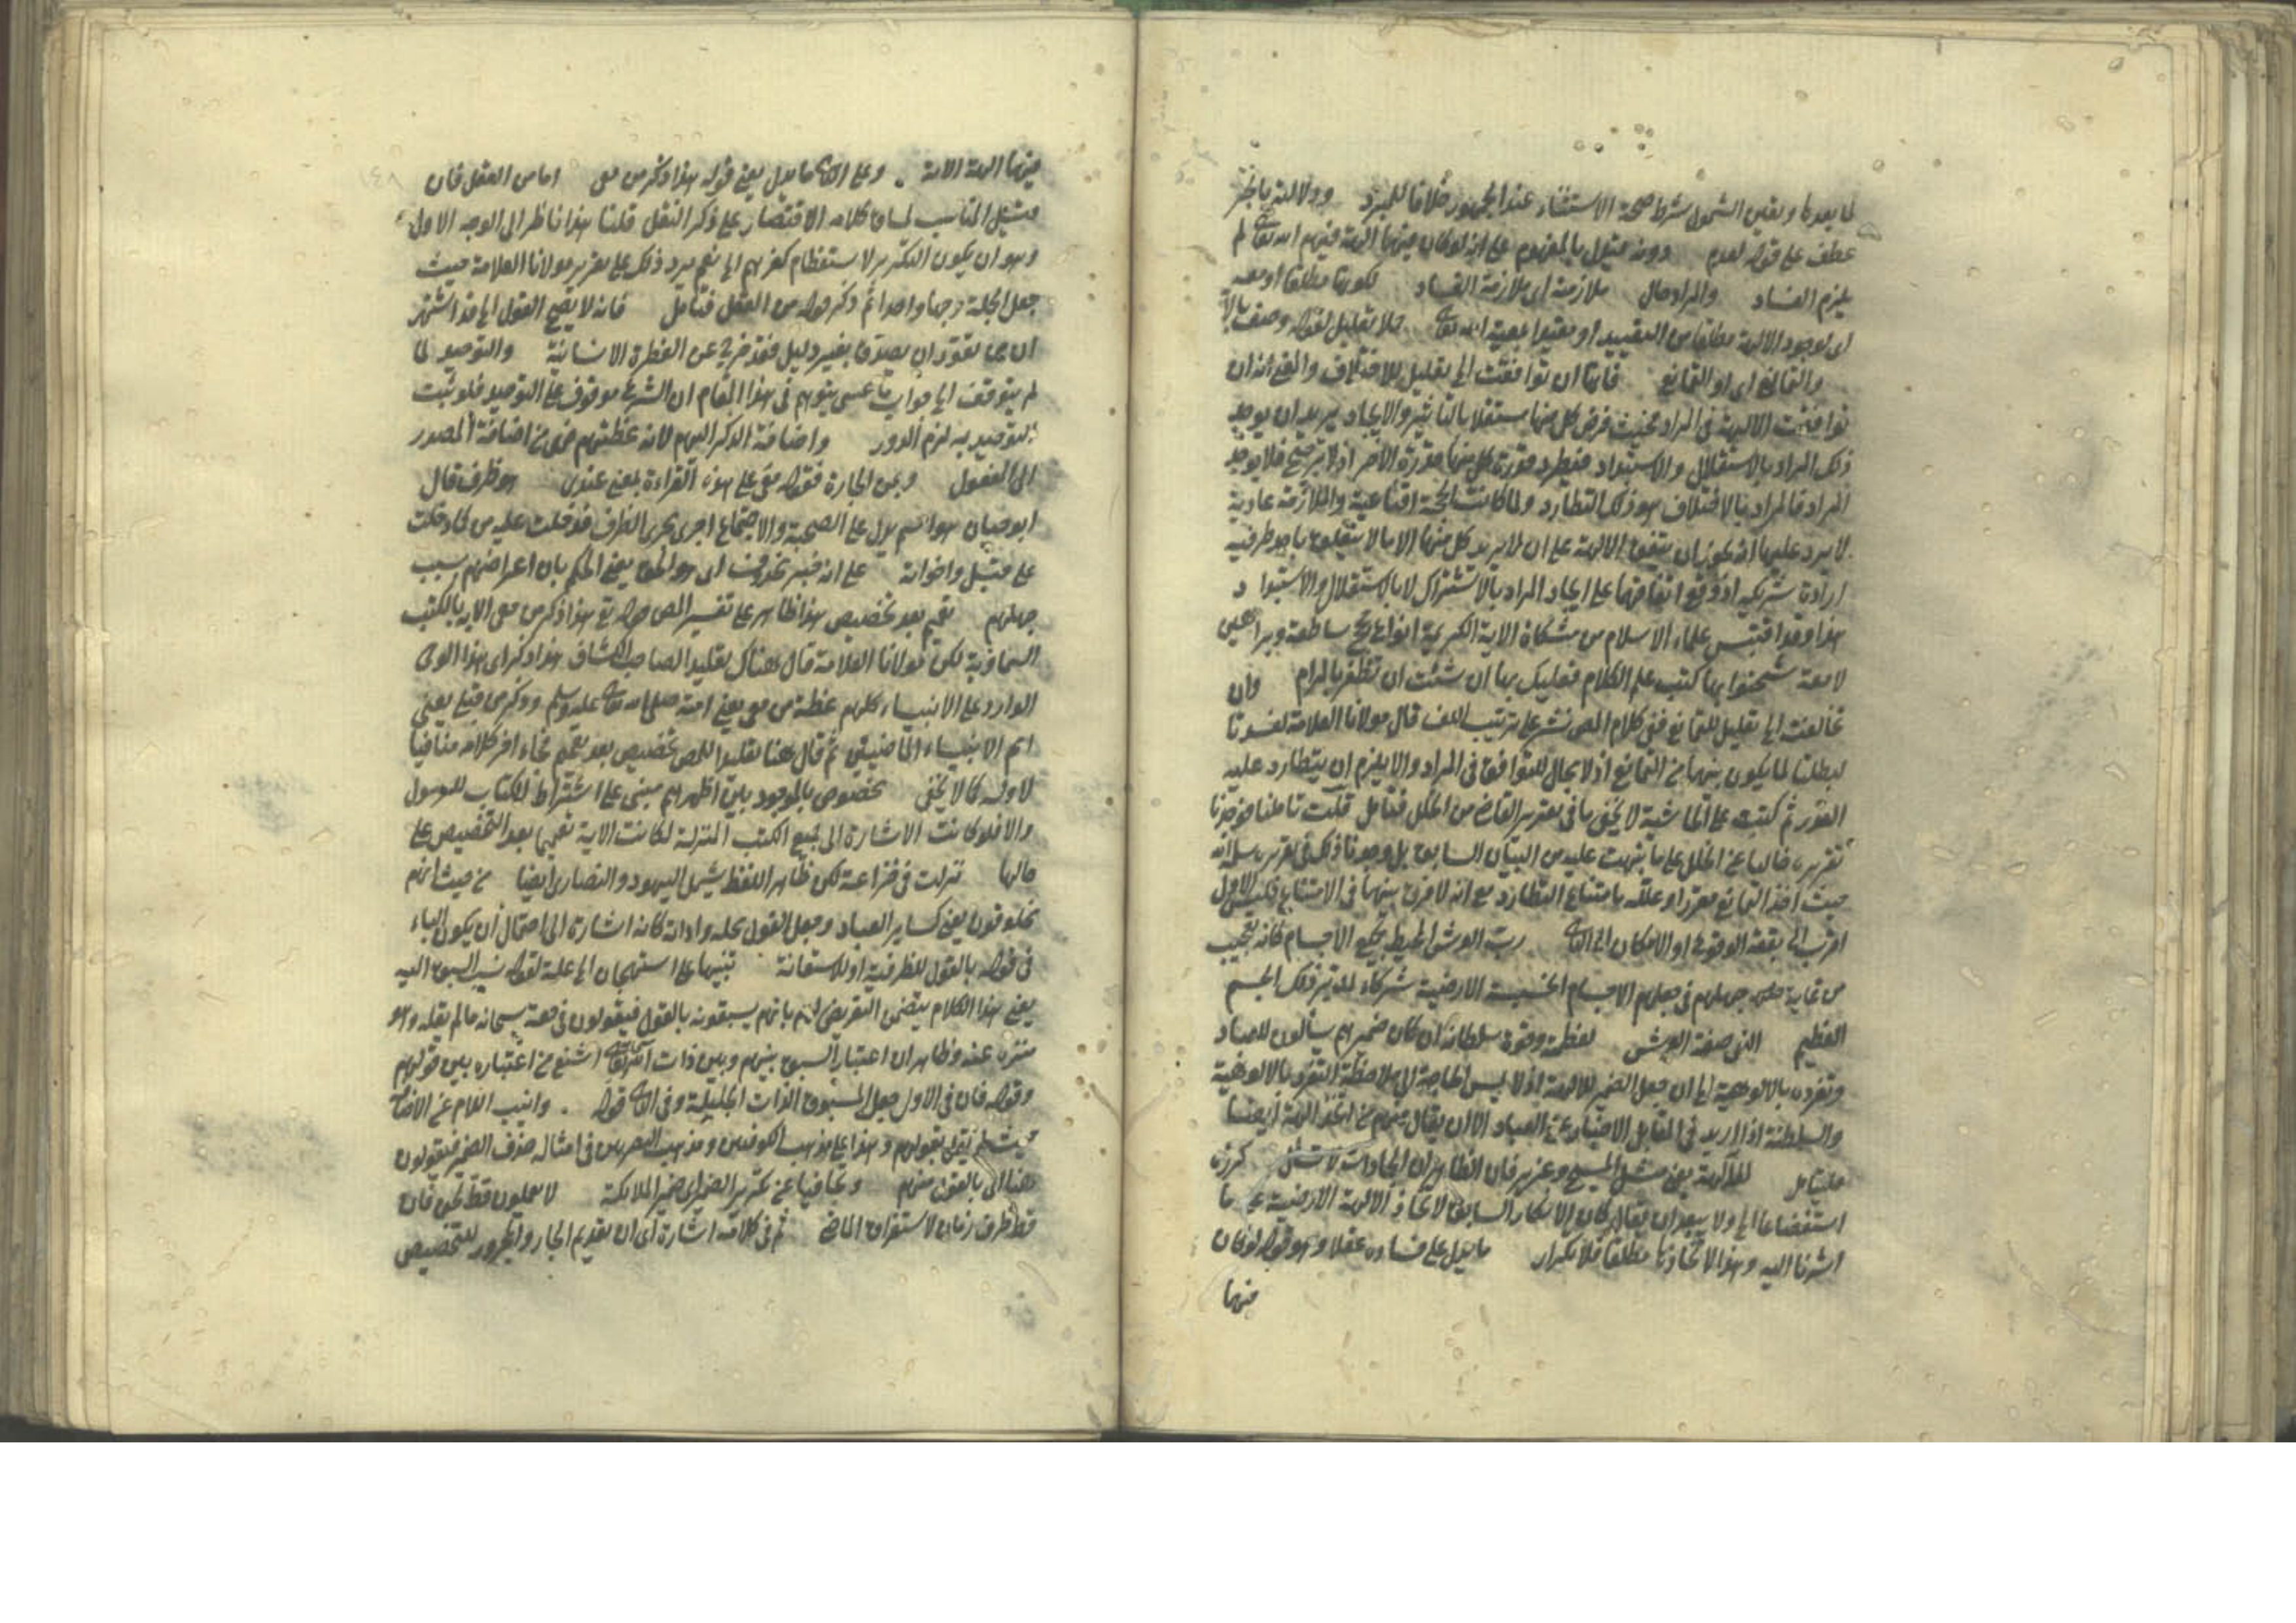 لما بعدها وتعين الشمول شرط صحة الاستثناء عند الجمهور خلافا للمبرد ودلالته بالجر
عطف على قوله لعدم دونه فيدل بالمفهوم على انه لو كان فيهما الهة فيهم الله تعالى لم
يلزم الفساد والمراد حال ملازمة اى ملازمة الفساد لكونها مطلقا او معه
اى لوجود الالهة مطلقا من التقييد او مقيدا بمعية الله تعالى حملا تعليل لقوله وصف بالا
والتمانع اى او التمانع فانها ان توافقت الى تعليل للاختلاف والمعنى انه ان
توافقت الالهة فى المراد بحيث فرض كل منها مستقلا بالتأثير والايجاد يريد ان يوجد
ذلك المراد بالاستقلال والاستبداد فيطرد قدرة كل منها قدرة الآخر اذ لا ترجيح فلا يوجد
المراد فالمراد بالاختلاف هو ذلك التطارد ولما كانت الحجة اقناعية والملازمة عادية
لا يرد عليها انه يجوز ان يتفق الالهة على ان لا يريد كل منها الا ما لا يتعلق باحد طرفيه
ارادة شريكه او وقع اتفاقها على ايجاد المراد بالاشتراك لا بالاستقلال والاستبداد
هذا وقد اقتبس علماء الاسلام من مشكاة الاية الكريمة انواع حجج ساطعة وبراهين
لامعة شحنوا بها كتب علم الكلام فعليك بها ان شئت ان تظفر بالمرام وان
تخالفت الى تعليل للتمانع ففى كلام المص نشر على ترتيب اللف قال مولانا العلامة لفسدتا
لبطلتا لما يكون بينهما من التمانع اذ لا مجال للتوافق فى المراد والا يلزم ان يتطارد عليه
القدر ثم كتب على الحاشية لا يخفى ما فى تقرير القاضى من الخلل فتأمل قلت تأملنا فوجدنا
تقريره خاليا عن الخلل على ما نبهت عليه من البيان السابق بل وجدنا ذلك فى تقريره سلمه الله
حيث اخذ التمانع مقررا وعلله بامتناع التطارد مع انه لا فرق بينهما فى الامتناع فليس الاول
اقرب الى بقعة الوقوع او الامكان الى الثانى رب العرش المحيط بجميع الاجسام كانه تعجيب
من غاية جهلهم فى جعلهم الاجسام الخسيسة الارضية شركاء لمدبر ذلك الجسم
العظيم الذى صفة العرش لعظمته وقوة سلطانه ان كان ضمير هم يسألون للعباد
وتفرده بالالوهية الى ان جعل الضمير للالهة اذ لا ليس الحاجة الى ملاحظة التفرد بالالوهية
والسلطنة اذا اريد فى المقابل الاخبار عن العباد الا ان يقال منهم من اتخذ الهة ايضا
فليتأمل للآلهة يعنى مثل المسيح وعزير فان الظاهر ان الجمادات لا تسئل كرره
استفضاعا الى ولا يبعد ان يقال كان الانكار السابق لاتخاذ الالهة الارضية على ما
اشرنا اليه وهذا لاتخاذها مطلقا فلا تكرار ما يدل على فساده عقلا وهو قوله لو كان
فيهما
فيهما الهة الاية . وعلى الثانى ما يدل يعنى قوله هذا ذكر من معى اما من العقل فان
قيل المناسب لساق كلامه الاقتصار على ذكر النقل قلنا هذا ناظر الى الوجه الاول
وهو ان يكون التكرير لاستعظام كفرهم الى نعم يرد ذلك على تقرير مولانا العلامة حيث
جعل الجملة وجها واحدا ثم ذكر قوله من العقل فتأمل فانه لا يصح القول الى قد اشتهر
ان من تعود ان يصدق بغير دليل فقد خرج عن الفطرة الانسانية والتوحيد لما
لم يتوقف الى جواب ما عسى يتوهم فى هذا المقام ان الشرع موقوف على التوحيد فلو ثبت
التوحيد به لزم الدور واضافة الذكر اليهم لانه عظتهم فهى من اضافة المصدر
الى المفعول وبمن الجارة فقوله معى على هذه القراءة بمعنى عندى هو ظرف قال
ابو حيان هو اسم يدل على الصحبة والاجتماع اجرى مجرى الظرف فدخلت عليه من كما دخلت
على قبل واخواته على انه خبر محذوف اى هو الحق يعنى الحكم بان اعراضهم بسبب
جهلهم تعميم بعد تخصيص هذا ظاهر على تفسير المص قوله تع هذا ذكر من معى الاية بالكتب
السماوية لكن مولانا العلامة قال هناك تقليدا لصاحب الكشاف هذا ذكر اى هذا الوحى
الوارد على الانبياء كلهم عظة من معى يعنى امته صلى الله تعالى عليه وسلم وذكر من قبلى يعنى
امم الانبياء الماضين ثم قال هنا تقليدا للمص تخصيص بعد تعميم فجاء اخر كلامه منافيا
لاوله كما لا يخفى مخصوص بالموجود بين اظهرهم مبنى على اشتراط الكتاب للرسول
والا فلو كانت الاشارة الى جميع الكتب المنزلة لكانت الاية تعميما بعد التخصيص على
حالها نزلت فى خزاعة لكن ظاهر اللفظ يشمل اليهود والنصارى ايضا من حيث انهم
مخلوقون يعنى كساير العباد وجعل القول محله واداته كانه اشارة الى احتمال ان يكون الباء
فى قوله بالقول للظرفية او للاستعانة تنبيها على استهجان الى علة لقوله نسب السبق اليه
يعنى هذا الكلام يتضمن التعريض لهم بانهم يسبقونه بالقول فيقولون فى حقه سبحانه ما لم يقله وهو
منزه عنه وظاهر ان اعتبار السبق بينهم وبين ذات الله تعالى اشنع من اعتباره بين قولهم
وقوله فان فى الاول جعل المسبوق الذات الجليلة وفى الثانى قوله . وانيب اللام عن الاضافة
حيث لم يقل بقولهم وهذا على مذهب الكوفيين ومذهب البصريين فى امثاله حذف الضمير فيقولون
هنا اى بالقول منهم وتجافيا عن تكرير الضمير اى ضمير الملائكة لا يعملون قط لحن فان
قط ظرف زمان لاستغراق الماضى ثم فى كلامه اشارة اى ان تقديم الجار والمجرور للتخصيص